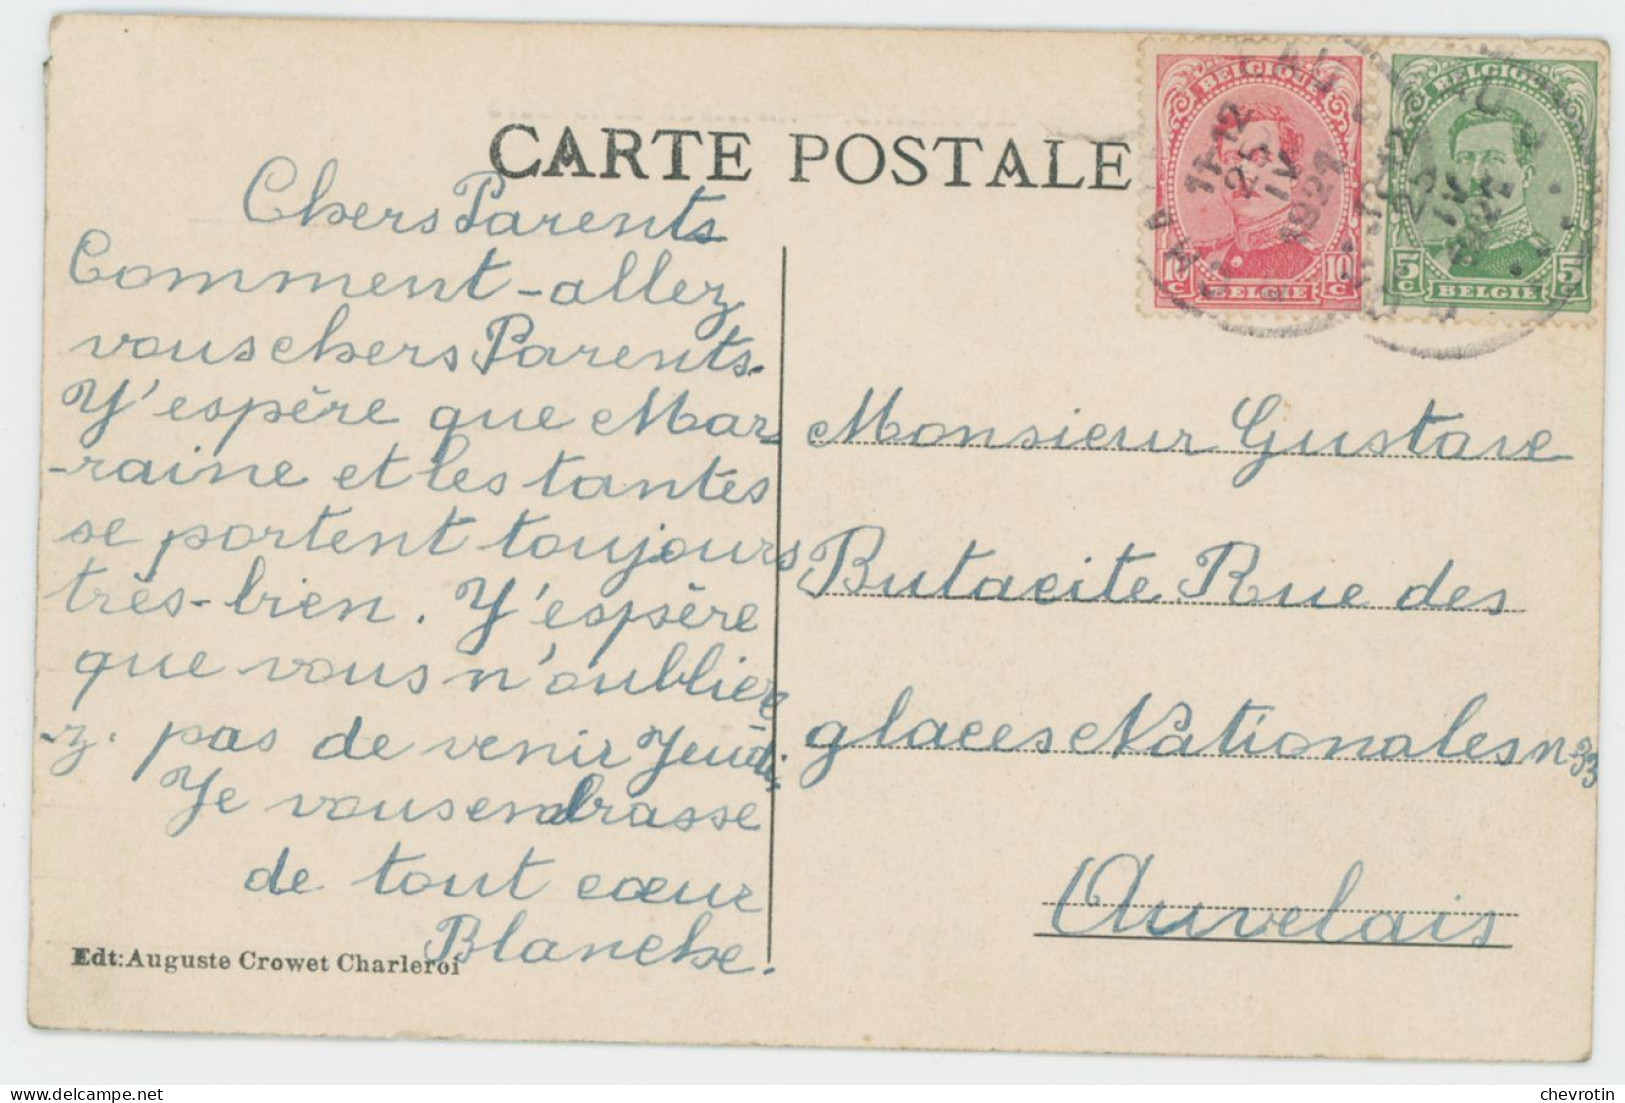 CARTE POSTALE
Chers Parents
Comment-allez
vous chers Parents.
J'espère que Mar-
-raine et les tantes
se portent toujours
très-bien. J'espère
que vous n'oublie
-z. pas de venir Jeudi.
Je vous embrasse
de tout cœur
Blanche.
Edt: Auguste Crowet Charleroi
BELGIQUE
10 C 10 C
BELGIE
11-12
25
IV
1921
BELGIQUE
5 C 5 C
BELGIE
25
IV
Monsieur Gustave
Butacite Rue des
glaces Nationales n 33
Auvelais
chevrotin